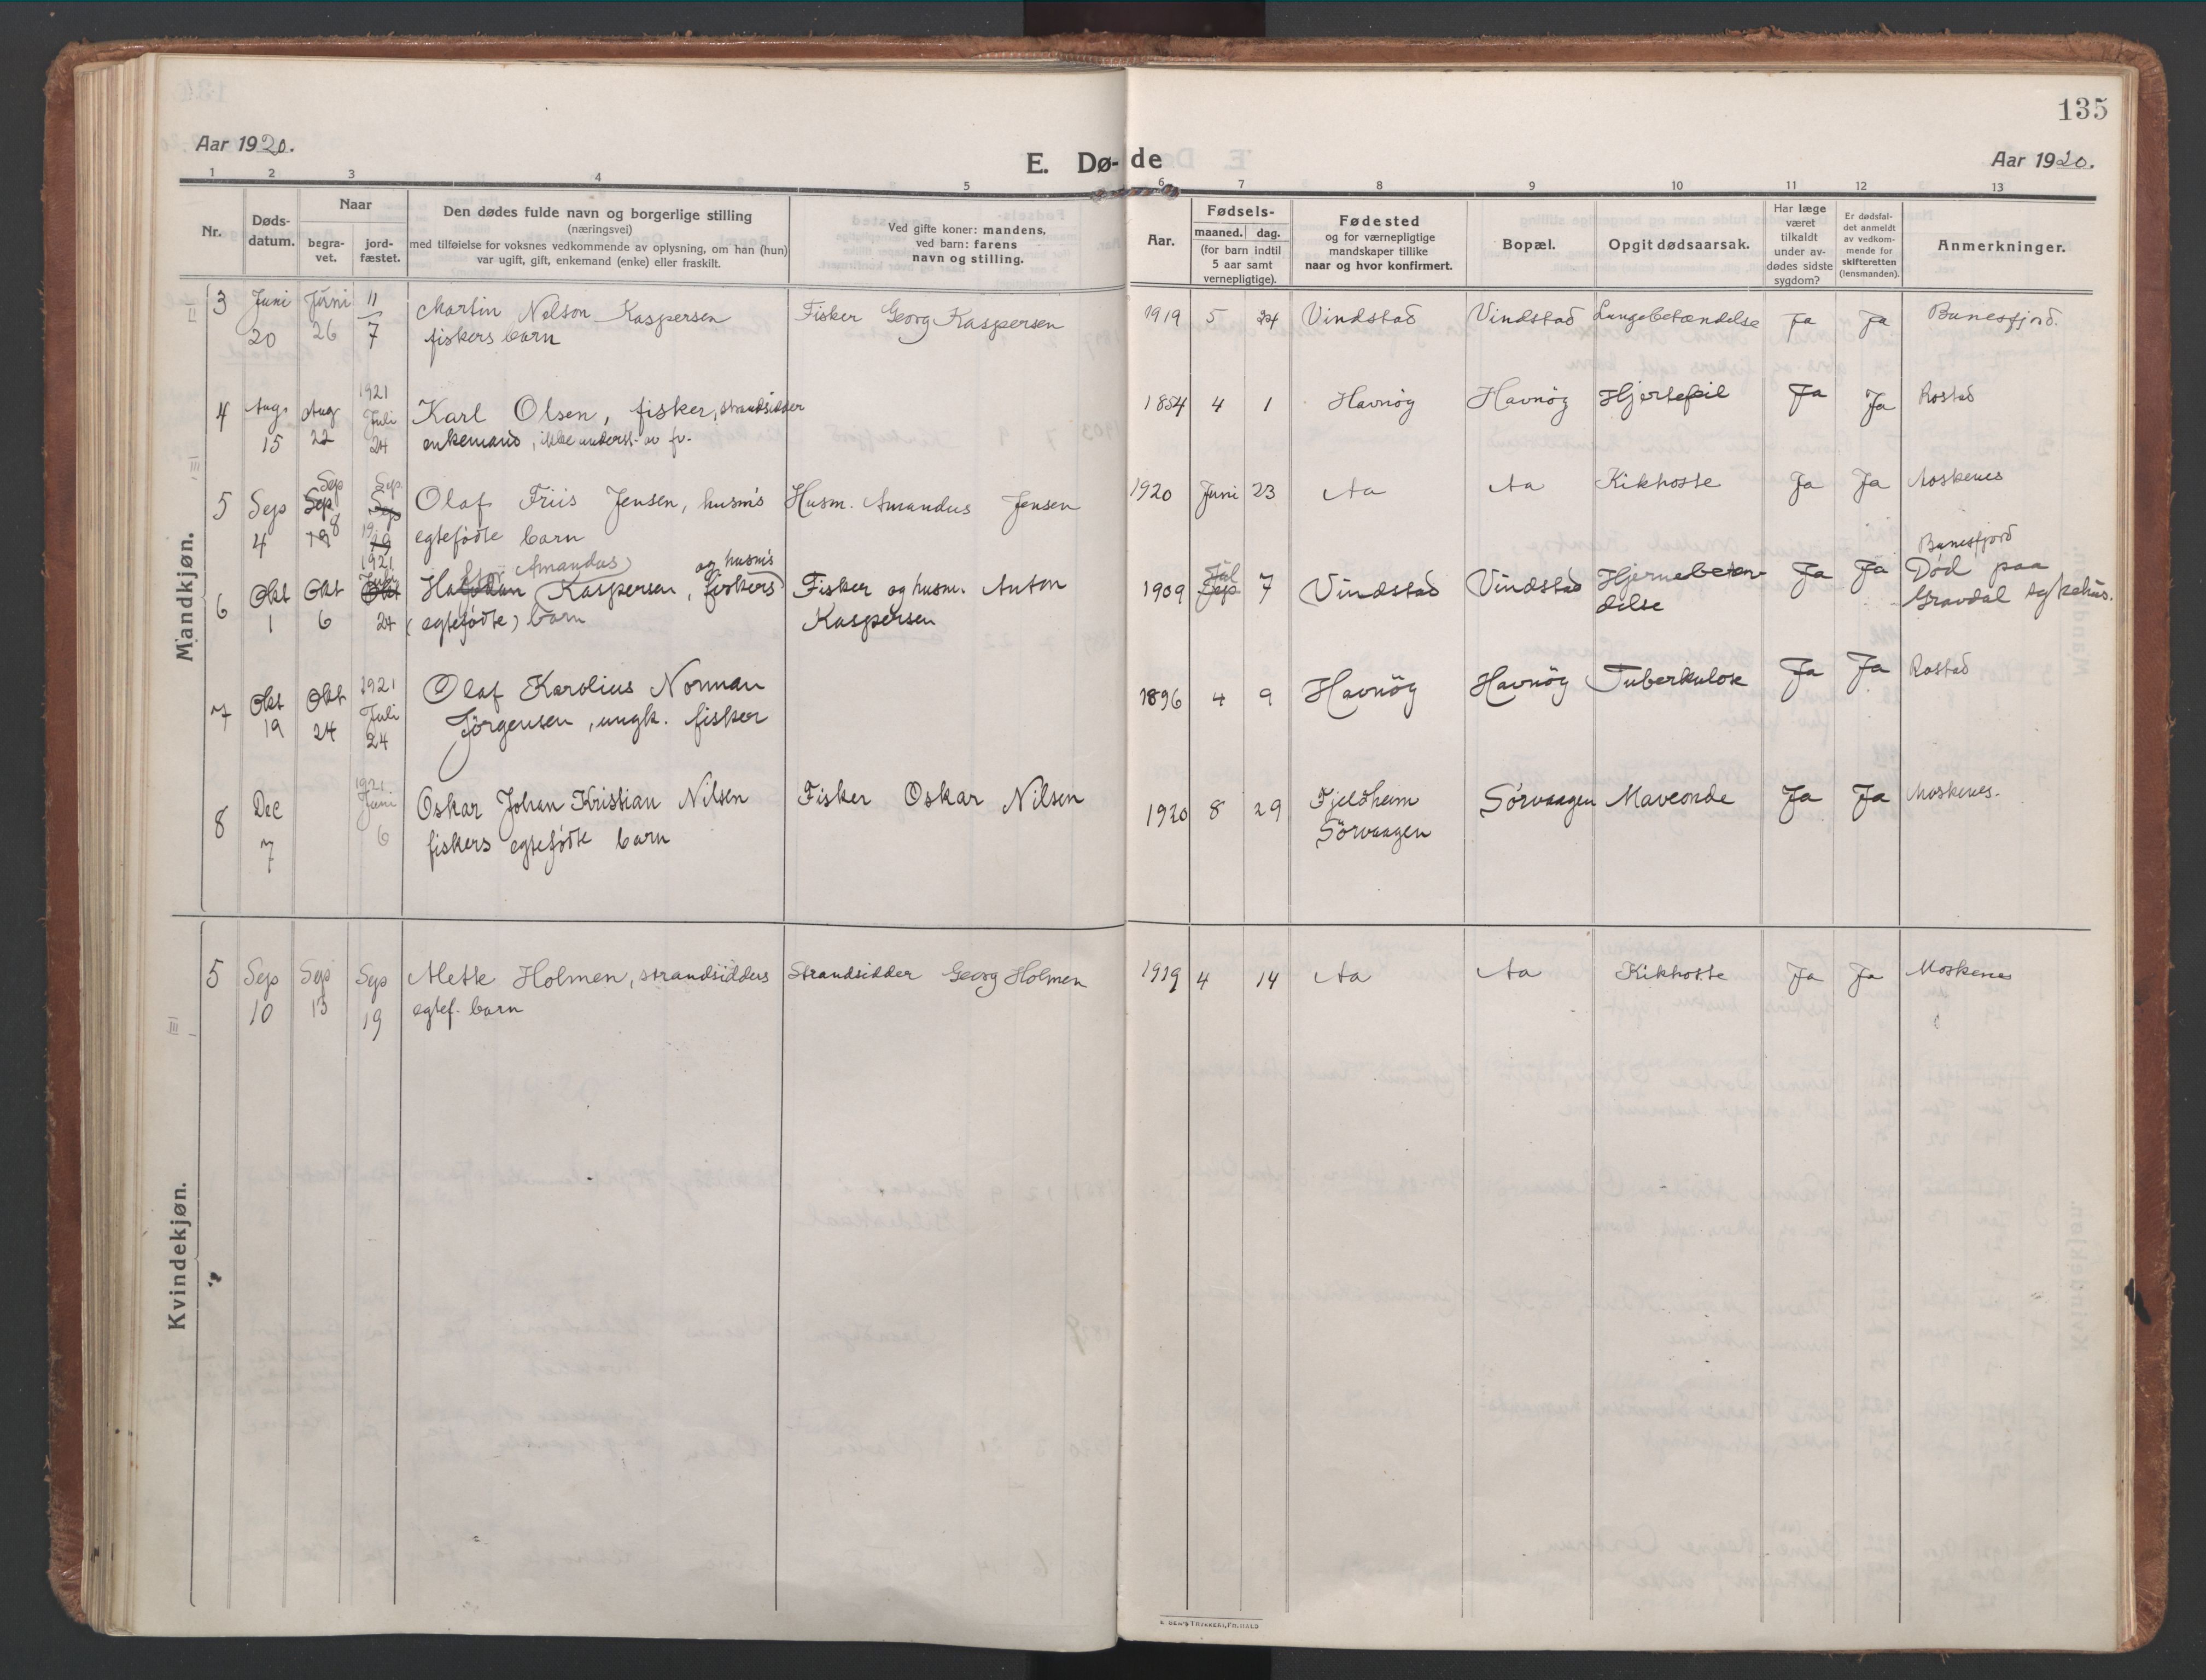 135
Aar 1920.
E. Dø-de
Aar 1920.
1 2 3 4 5 6 7 8 9 10 11 12 13
Nr.
Døds-
datum.
Naar
begra-
vet.
jord-
fæstet.
Den dødes fulde navn og borgerlige stilling
(næringsvei)
med tilføielse for voksnes vedkommende av oplysning, om han (hun)
var ugift, gift, enkemand (enke) eller fraskilt.
Ved gifte koner: mandens,
ved barn: farens
navn og stilling.
Aar.
Fødsels-
maaned. dag.
(for barn indtil
5 aar samt
vernepligtige).
Fødested
og for værnepligtige
mandskaper tillike
naar og hvor konfirmert.
Bopæl.
Opgit dødsaarsak.
Har læge
været
tilkaldt
under av-
dødes sidste
sygdom?
Er dødsfal-
det anmeldt
av vedkom-
mende for
skifteretten
(lensmanden).
Anmerkninger.
Mandkjøn.
3 Juni Juni 11 Martin Nelson Kaspersen Fisker Georg Kaspersen 1919 5 24 Vindstad Vindstad Lungebetændelse Ja Ja Bunesfjord.
20 26 7 fiskers barn
1921
4 Aug. Aug Juli Karl Olsen, fisker, strandsidder 1854 4 1 Havnög Havnög Hjertefeil Ja Ja Rostad
15 22 24 enkemand, ikke underst. av fv.
Sep Sep.
5 Sep Sep Sep Olaf Friis Jensen, husm's Husm. Amandus Jensen 1920 Juni 23 Aa Aa Kikhoste Ja Ja Moskenes
4 19 8 19 19 egtefödte barn
1921 Amandus og husm's Bunesfjord
6 Okt Okt Juli Okt Halvdan Kaspersen, fiskers Fisker og husm. Anton 1909 Jul Sep 7 Vindstad Vindstad Hjernebeten- Ja Ja Död paa
1 6 24 (egtefödte) barn Kaspersen delse Gravdal sykehus.
1921
7 Okt Okt Juli Olaf Karolius Norman 1896 4 9 Havnög Havnög Tuberkulose Ja Ja Rostad
19 24 24 Jörgensen, ungk. fisker
1921
8 Dec Juni Oskar Johan Kristian Nilsen Fisker Oskar Nilsen 1920 8 29 Fjeldheim Sörvaagen Maveonde Ja Ja Moskenes.
7 6 fiskers egtefödte barn Sörvaagen
Kvindekjøn.
5 Sep Sep Sep Alette Holmen, strandsidders Strandsidder Georg Holmen 1919 4 14 Aa Aa Kikhoste Ja Ja Moskenes
10 13 19 egtef. barn